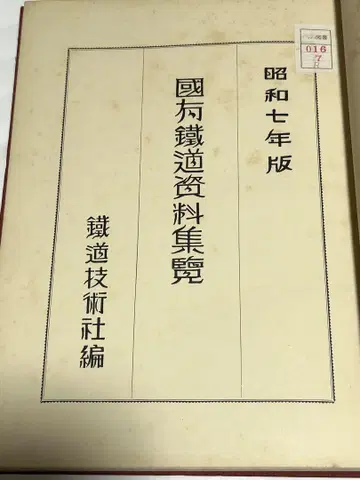 昭和七年版
國有鐵道資料集覽
鐵道技術社編
016
7